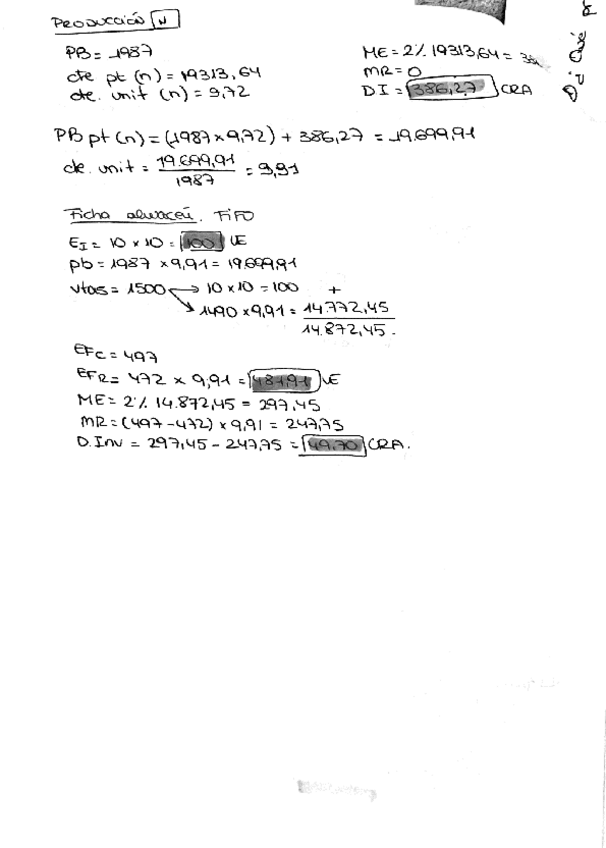 PRODUCCIÓN N
PB = 1987
cte pt (n) = 19313,64
cte. unit (n) = 9,72
ME = 2% 19313,64 =
MR = 0
DI = 386,27 CRA
PB pt (n) = (1987 x 9,72) + 386,27 = 19.699,91
cte. unit = 19.699,91 / 1987 = 9,91
Ficha almacén. FIFO
EI = 10 x 10 = 100 UE
pb = 1987 x 9,91 = 19.699,91
vtas = 1500 → 10 x 10 = 100 +
→ 1490 x 9,91 = 14.772,45
14.872,45.
EFC = 497
EFR = 472 x 9,91 = UE
ME = 2% 14.872,45 = 297,45
MR = (497 - 472) x 9,91 = 247,75
D.Inv = 297,45 - 247,75 = 49,70 CRA.